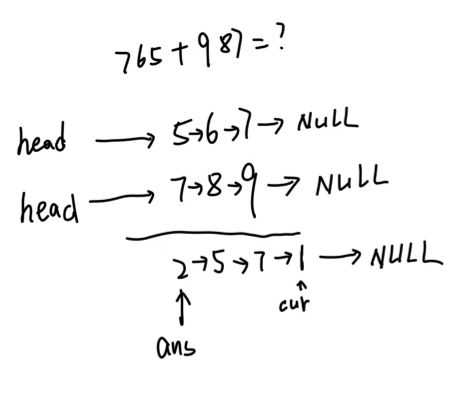 765+987=?
head → 5→6→7→ NULL
head → 7→8→9→ NULL
2→5→7→1→NULL
ans
cur